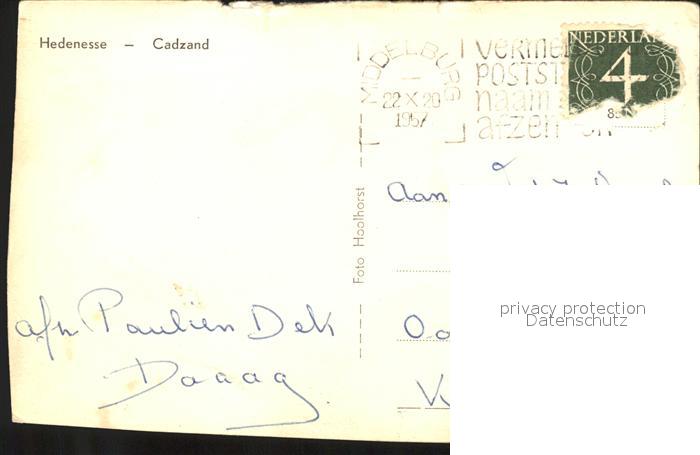 Hedenesse – Cadzand
MIDDELBURG
22 X 20
1957
POSTST
naam
afzen
NEDERLAN
4
Foto Hoolhorst
Aan
afz Paulien Dek
Daaag
privacy protection
Datenschutz